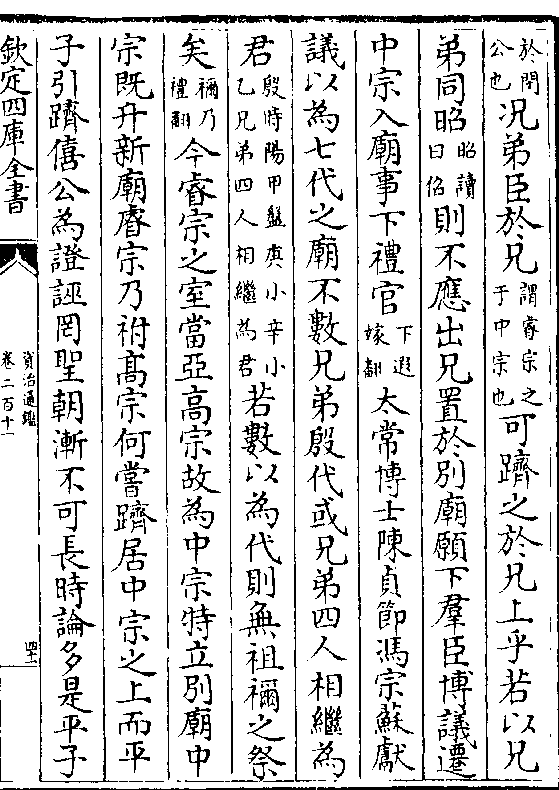 於閔公也况弟臣於兄謂睿宗之于中宗也可躋之於兄上乎若以兄
弟同昭昭讀曰佋則不應出兄置於别廟願下羣臣博議遷
中宗入廟事下禮官下遐嫁翻太常博士陳貞節馮宗蘇獻
議以為七代之廟不數兄弟殷代或兄弟四人相繼為
君殷時陽甲盤庚小辛小乙兄弟四人相繼為君若數以為代則無祖禰之祭
矣禰乃禮翻今睿宗之室當亞高宗故為中宗特立别廟中
宗既升新廟睿宗乃祔髙宗何嘗躋居中宗之上而平
子引躋僖公為證誣罔聖朝漸不可長時論多是平子
欽定四庫全書
資治通鑑
卷二百十一